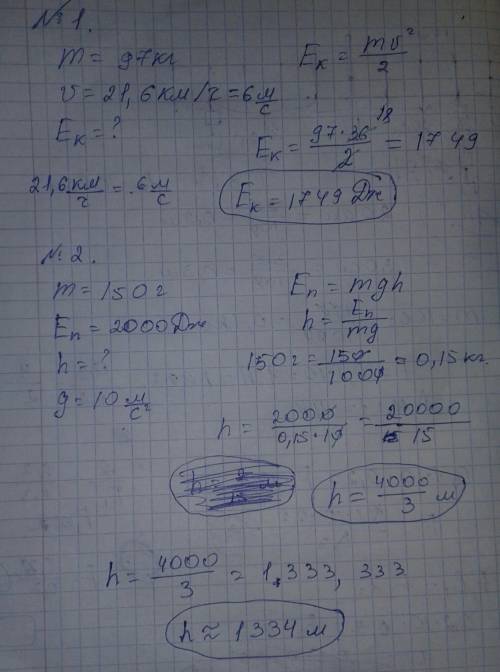 № 1.
m = 97кг
v = 21,6 км/ч = 6 м/с
Eк = ?
21,6 км/ч = 6 м/с
Eк = mv²/2
Eк = 97·36/2 18 = 1749
Eк = 1749 Дж
№ 2.
m = 150г
Eп = 2000Дж
h = ?
g = 10 м/с²
Eп = mgh
h = Eп/mg
150г = 150/1000 = 0,15 кг.
h = 2000/0,15·10 = 20000/15
h = 4000/3 м
h = 4000/3 = 1.333, 333
h ≈ 1334 м